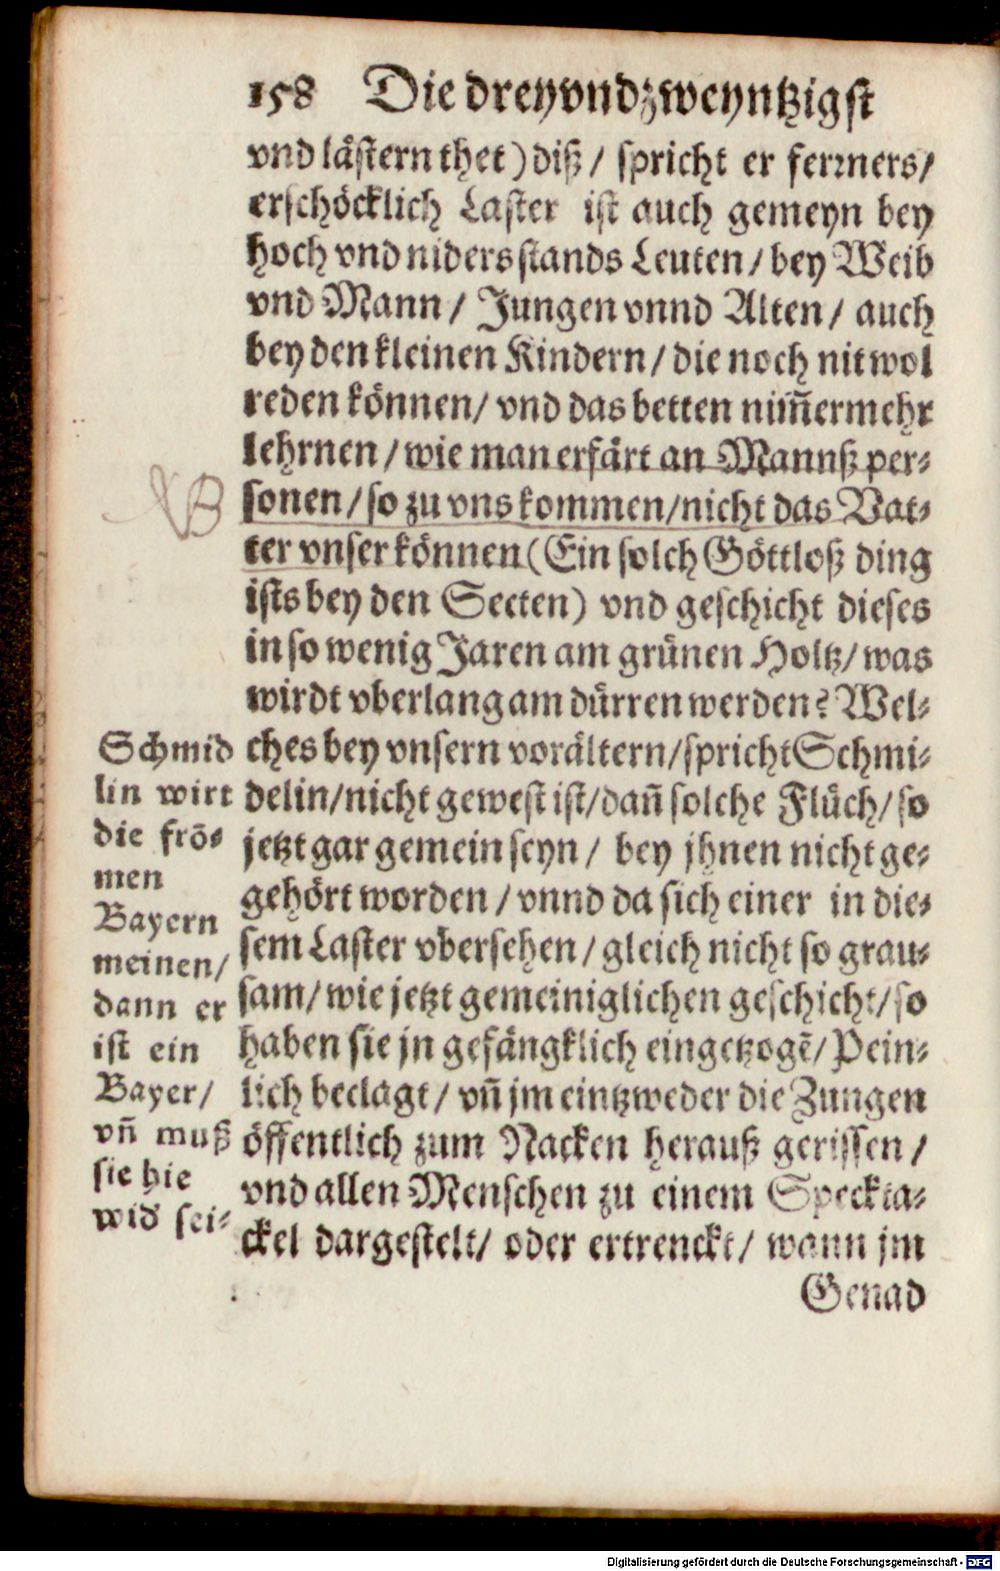 158 Die dreyvndzweyntzigst
vnd lästern thet) diß / spricht er ferrners /
erschöcklich Laster ist auch gemeyn bey
hoch vnd niders stands Leuten / bey Weib
vnd Mann / Jungen vnnd Alten / auch
bey den kleinen Kindern / die noch nit wol
reden können / vnd das betten nim̃ermehr
lehrnen / wie man erfärt an Mannß per-
sonen / so zu vns kommen / nicht das Vat-
ter vnser können (Ein solch Göttloß ding
ists bey den Secten) vnd geschicht dieses
in so wenig Jaren am grünen Holtz / was
wirdt vberlang am dürren werden? Wel-
ches bey vnsern vorältern / spricht Schmi-
delin / nicht gewest ist / dañ solche Flüch / so
jetzt gar gemein seyn / bey jhnen nicht ge-
gehört worden / vnnd da sich einer in die-
sem Laster vbersehen / gleich nicht so grau-
sam / wie jetzt gemeiniglichen geschicht / so
haben sie jn gefängklich eingetzogẽ / Pein-
lich beclagt / vñ jm eintzweder die Zungen
öffentlich zum Nacken herauß gerissen /
vnd allen Menschen zu einem Speckta-
ckel dargestelt / oder ertrenckt / wann jm
Genad
NB
Schmid
lin wirt
die frõ-
men
Bayern
meinen /
dann er
ist ein
Bayer /
vñ muß
sie hie
wid sei-
Digitalisierung gefördert durch die Deutsche Forschungsgemeinschaft - DFG